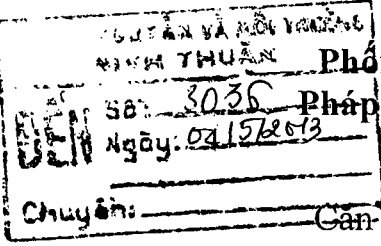 VÀ MÔI TRƯỜNG
THUẬN Phổ
ĐẾN Số: 3036 Pháp
Ngày: 04/5/2013
Chuyển: Căn